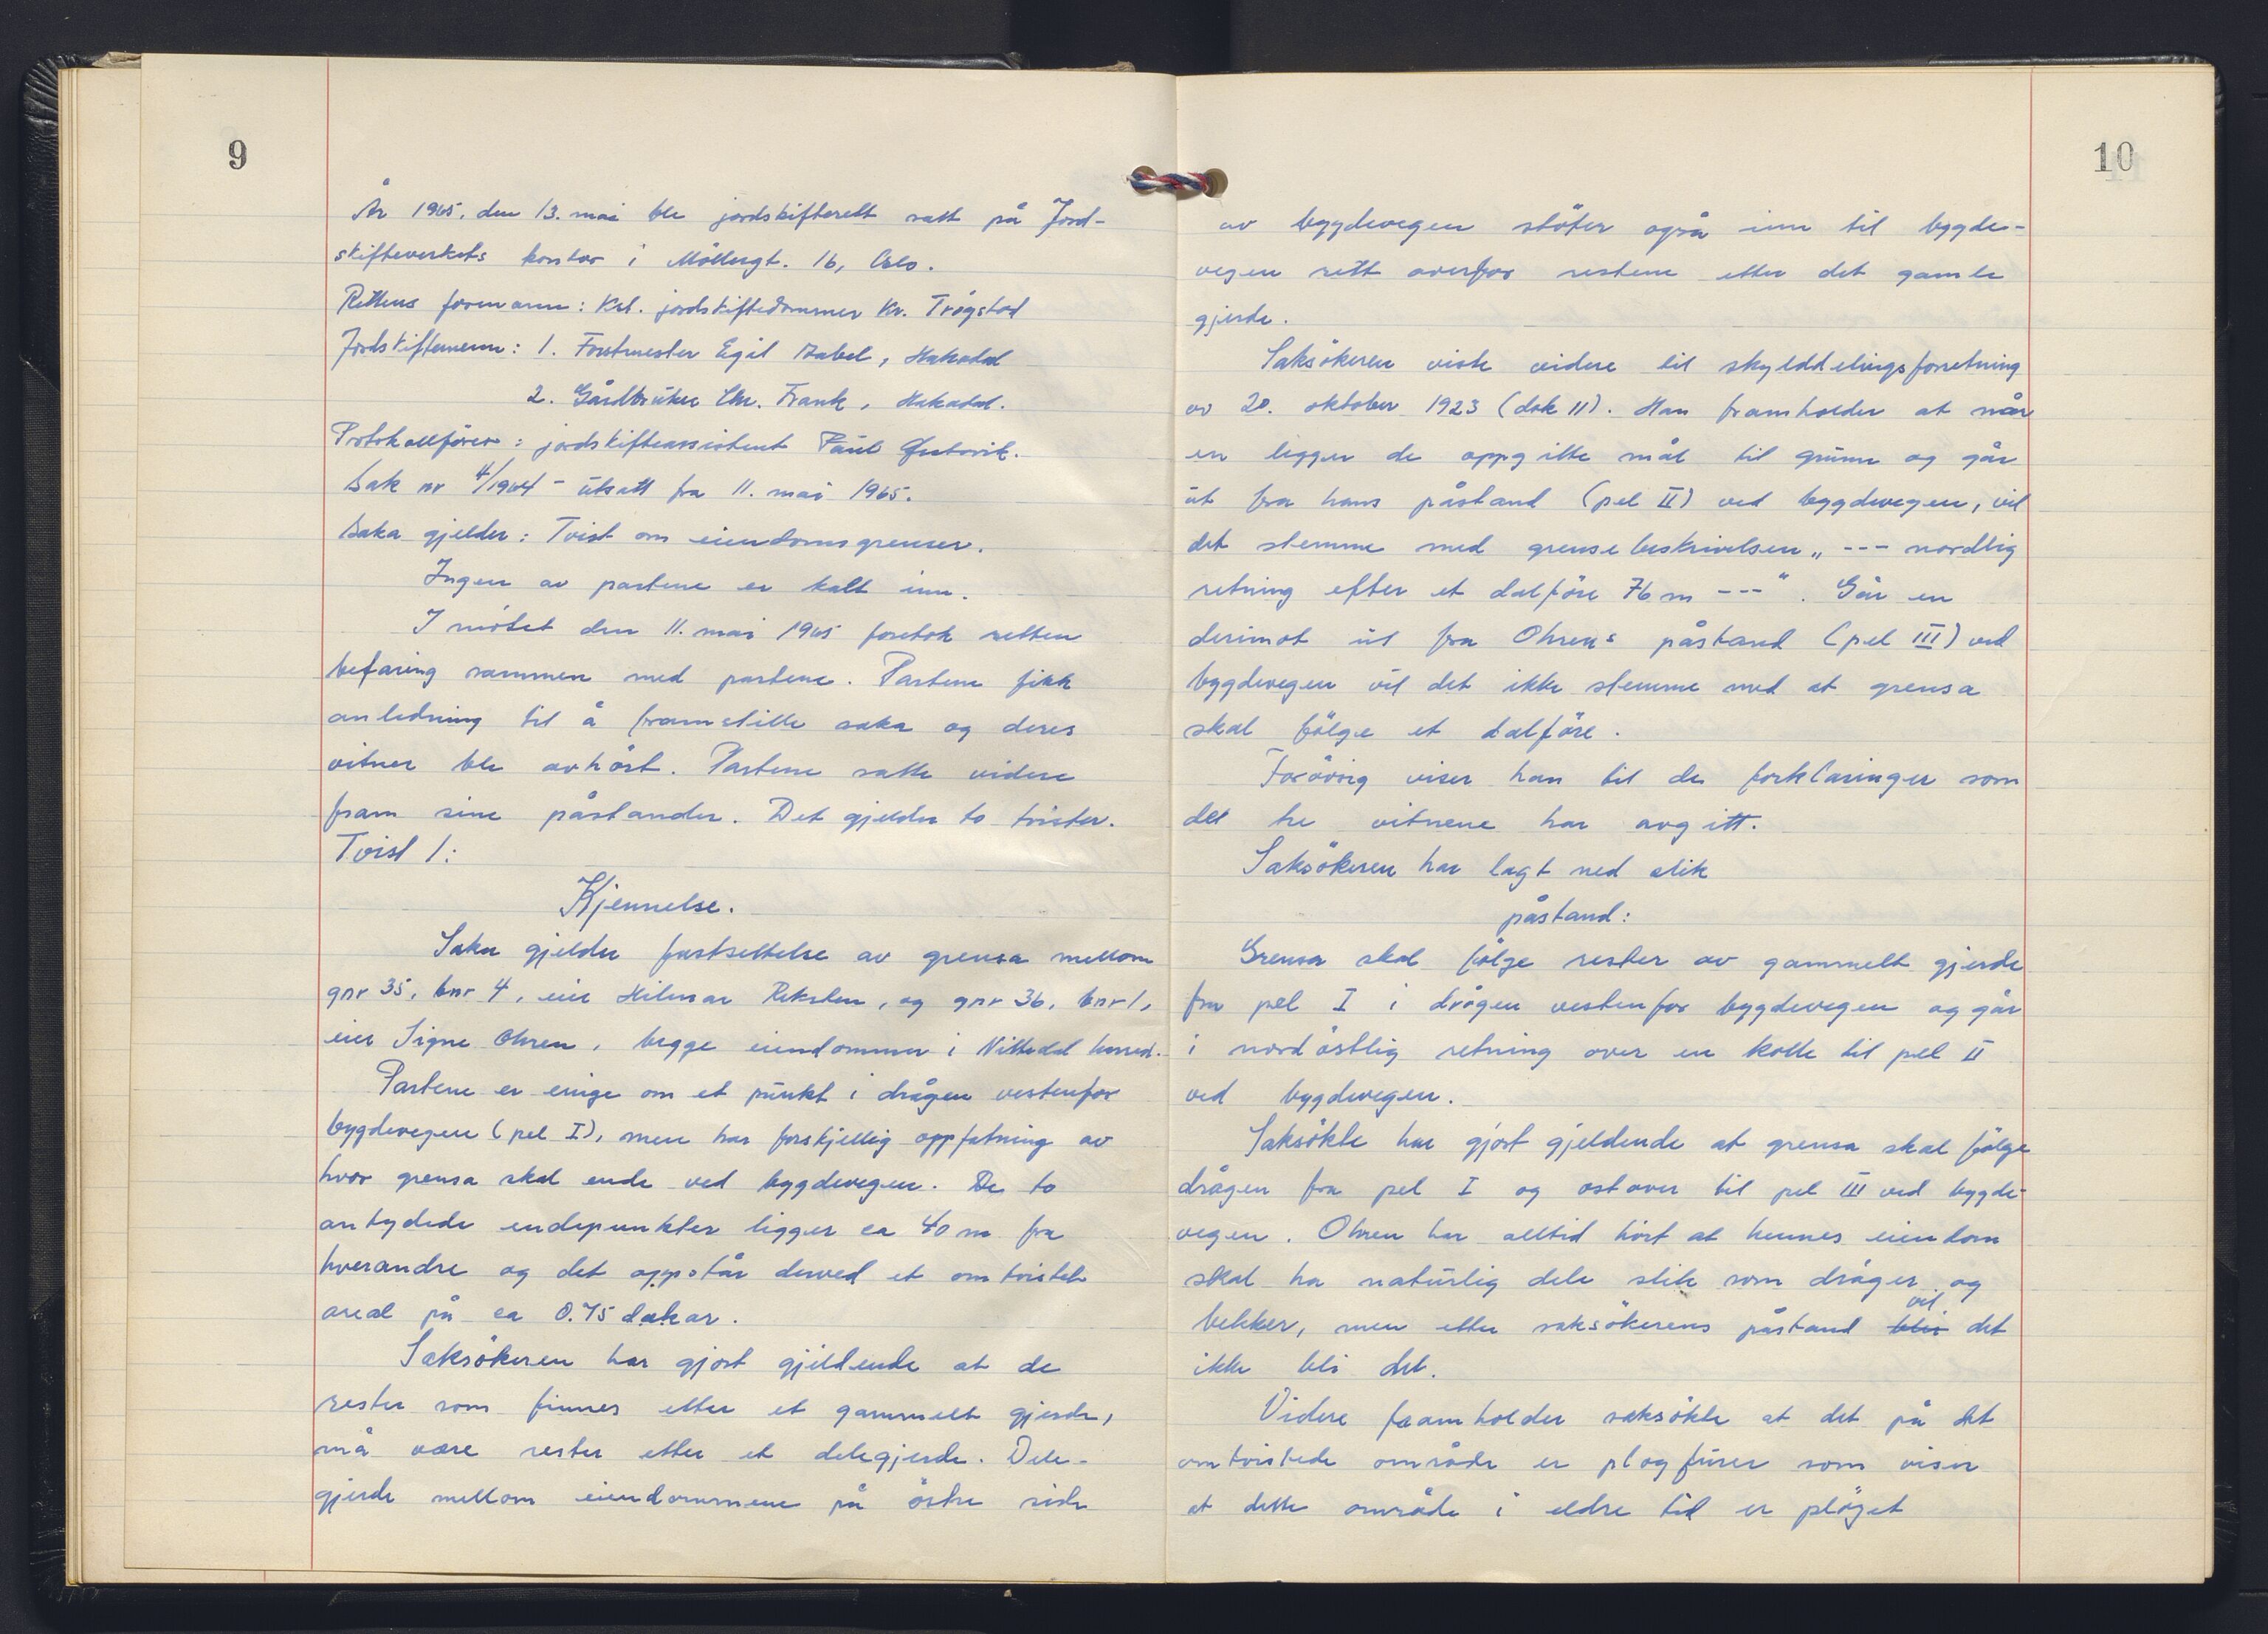 9
År 1965, den 13. mai ble jordskifterett satt på Jord-
skifteverkets kontor i Möllergt. 16, Oslo.
Rettens formann: Kst. jordskiftedommer Kr. Trøgstad
Jordskiftemenn: 1. Forstmester Egil Zabel, Hakadal
2. Gårdbruker Chr. Frank, Hakadal.
Protokollfører: jordskifteassistent Paul
Sak nr 4/1964 - utsatt fra 11. mai 1965.
Saka gjelder: Tvist om eiendomsgrenser.
Ingen av partene er kalt inn.
I møtet den 11. mai 1965 foretok retten
befaring sammen med partene. Partene fikk
anledning til å framstille saka og deres
vitner ble avhört. Partene satte videre
fram sine påstander. Det gjelder to tvister.
Tvist 1:
Kjennelse.
Saka gjelder fastsettelse av grensa mellom
gnr 35, bnr 4, eier Hilmar Reksten, og gnr 36, bnr 1,
eier Signe Ohren, begge eiendommer i Nittedal herred.
Partene er enige om et punkt i drågen vestenfor
bygdevegen (pel I), men har forskjellig oppfatning av
hvor grensa skal ende ved bygdevegen. De to
antydede endepunkter ligger ca 40 m fra
hverandre og det oppstår derved et omtvistet
areal på ca 0.75 dekar.
Saksökeren har gjort gjeldende at de
rester som finnes etter et gammelt gjerde,
må være rester etter et delegjerde. Dele-
gjerde mellom eiendommene på östre side
10
av bygdevegen stöter også inn til bygde-
vegen rett overfor restene etter det gamle
gjerde.
Saksökeren viste videre til skylddelingsforretning
av 20. oktober 1923 (dok 11). Han framholder at når
en legger de oppgitte mål til grunn og går
ut fra hans påstand (pel II) ved bygdevegen, vil
det stemme med grensebeskrivelsen „--- nordlig
retning efter et dalföre 76 m ---". Går en
derimot ut fra Ohrens påstand (pel III) ved
bygdevegen vil det ikke stemme med at grensa
skal fölge et dalföre.
Forövrig viser han til de forklaringer som
det tre vitnene har avgitt.
Saksökeren har lagt ned slik
påstand:
Grensa skal fölge rester av gammelt gjerde
fra pel I i drågen vestenfor bygdevegen og går
i nordöstlig retning over en kolle til pel II
ved bygdevegen.
Saksökte har gjort gjeldende at grensa skal fölge
drågen fra pel I og østover til pel III ved bygde-
vegen. Ohren har alltid hört at hennes eiendom
skal ha naturlig dele slik som dråger og
bekker, men etter saksökerens påstand blir vil det
ikke bli det.
Videre framholder saksökte at det på det
omtvistede område er plogfurer som viser
at dette område i eldre tid er plöget